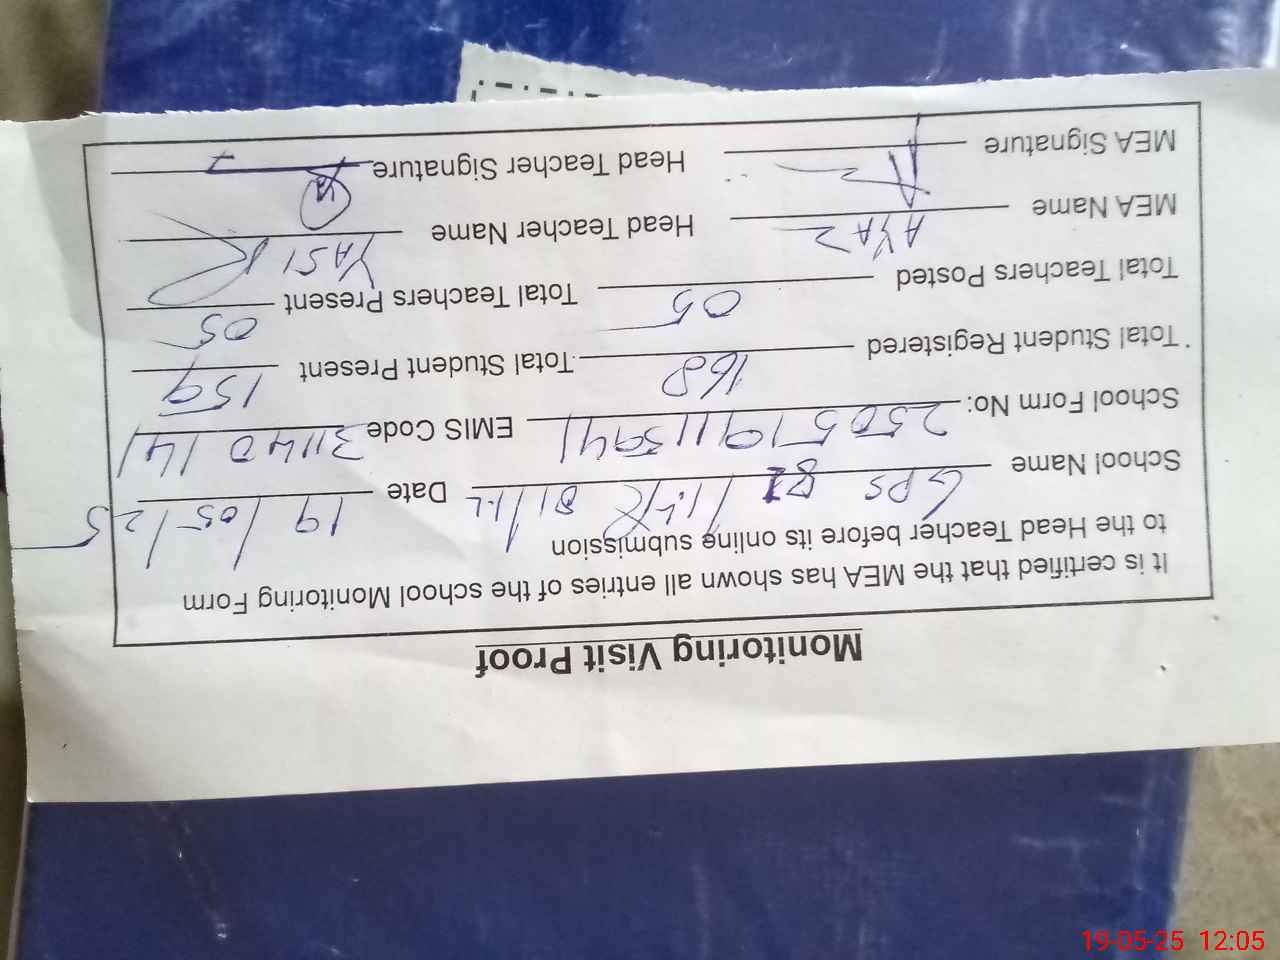 Monitoring Visit Proof
It is certified that the MEA has shown all entries of the school Monitoring Form
to the Head Teacher before its online submission
School Name GPS Date 19/05/25
School Form No: 25051911 EMIS Code 31140141
Total Student Registered 168 Total Student Present 159
Total Teachers Posted 05 Total Teachers Present 05
MEA Name AYAZ Head Teacher Name YASIR
MEA Signature Head Teacher Signature
19-05-25 12:05